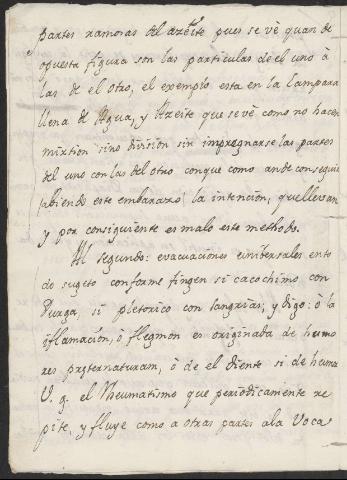 partes ramosas del azeite pues se vè quan de
opuesta figura son las particulas de el uno à
las de el otro, el exemplo esta en la Lampara
llena de Agua, y Azeite que se vè como no hacen
mixtion sino division sin impregnarse las partes
del uno con las del otro conque como an de conseguir
(abiendo este embarazo) la intención, que llevan
y por consiguiente es malo este methodo.
Al segundo: evacuaciones universales en to
do sugeto conforme fingen si cacochimo con
Purga, si pletorico con sangrias; y digo: ò la
iflamación, ò flegmon es originada de humo
res preternaturam, ò de el diente si de humor
V. g. el Rheumatismo que periodicamente re
pite, y fluye como a otras partes a la Voca